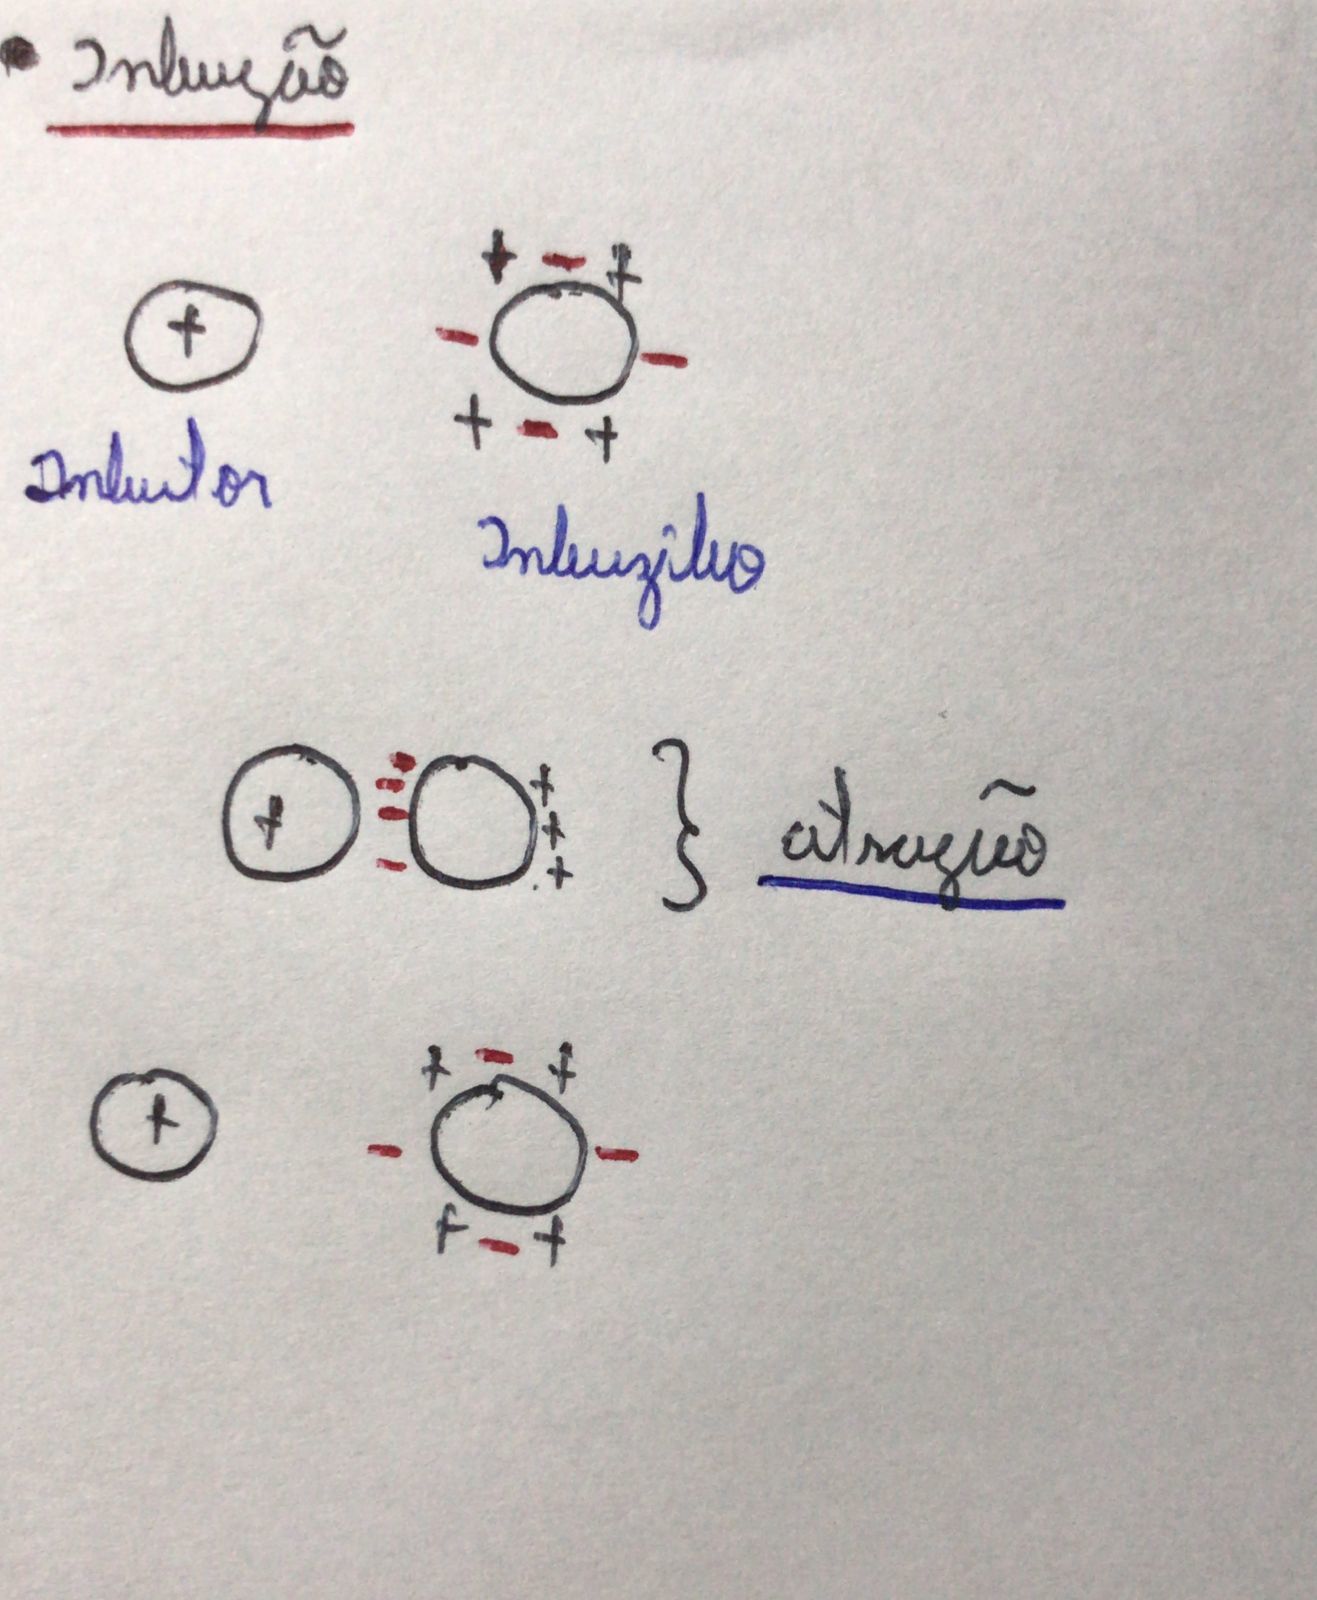 • Indução
+ - +
+ - -
+ - +
Indutor
Induzido
- +
-
+ - +
- +
} atração
+ - +
+ - -
+ - +